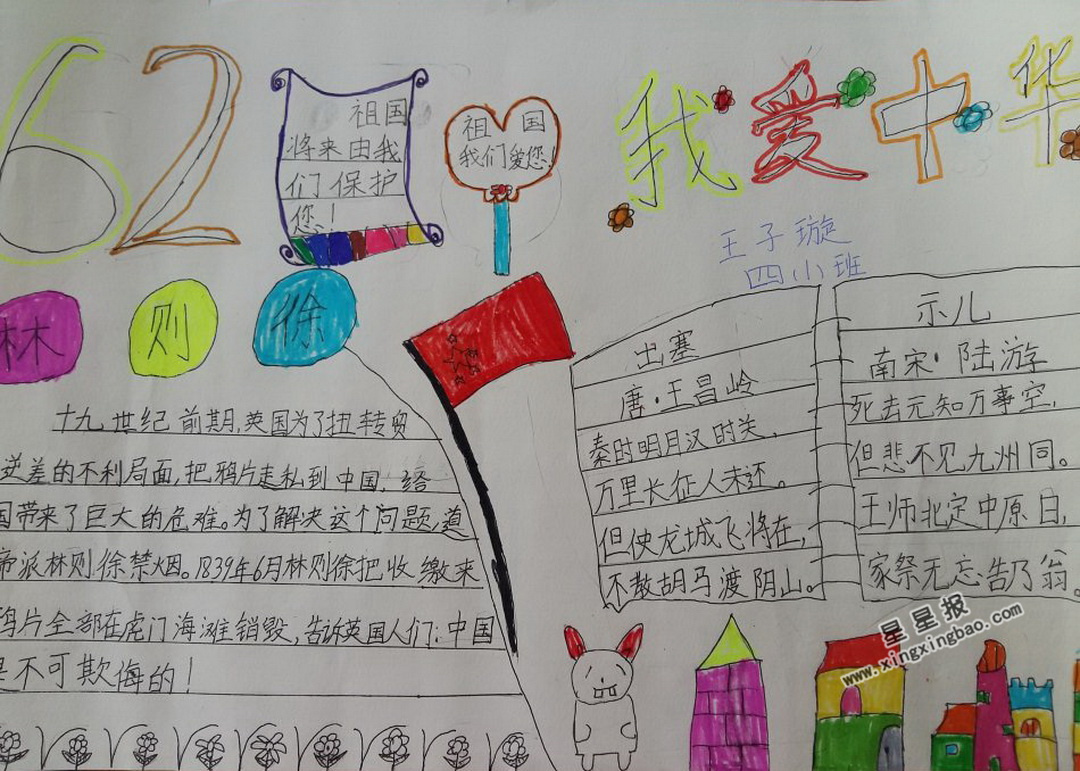 62
祖国
将来由我
们保护
您！
祖国
我们爱您！
我爱中华
王子璇
四小班
林则徐
十九世纪前期，英国为了扭转贸
逆差的不利局面，把鸦片走私到中国，给
国带来了巨大的危难。为了解决这个问题，道
帝派林则徐禁烟。1839年6月林则徐把收缴来
鸦片全部在虎门海滩销毁，告诉英国人们：中国
是不可欺侮的！
出塞
唐·王昌岭
秦时明月汉时关，
万里长征人未还。
但使龙城飞将在，
不教胡马渡阴山。
示儿
南宋·陆游
死去无知万事空，
但悲不见九州同。
王师北定中原日，
家祭无忘告乃翁。
星星报
www.xingxingbao.com